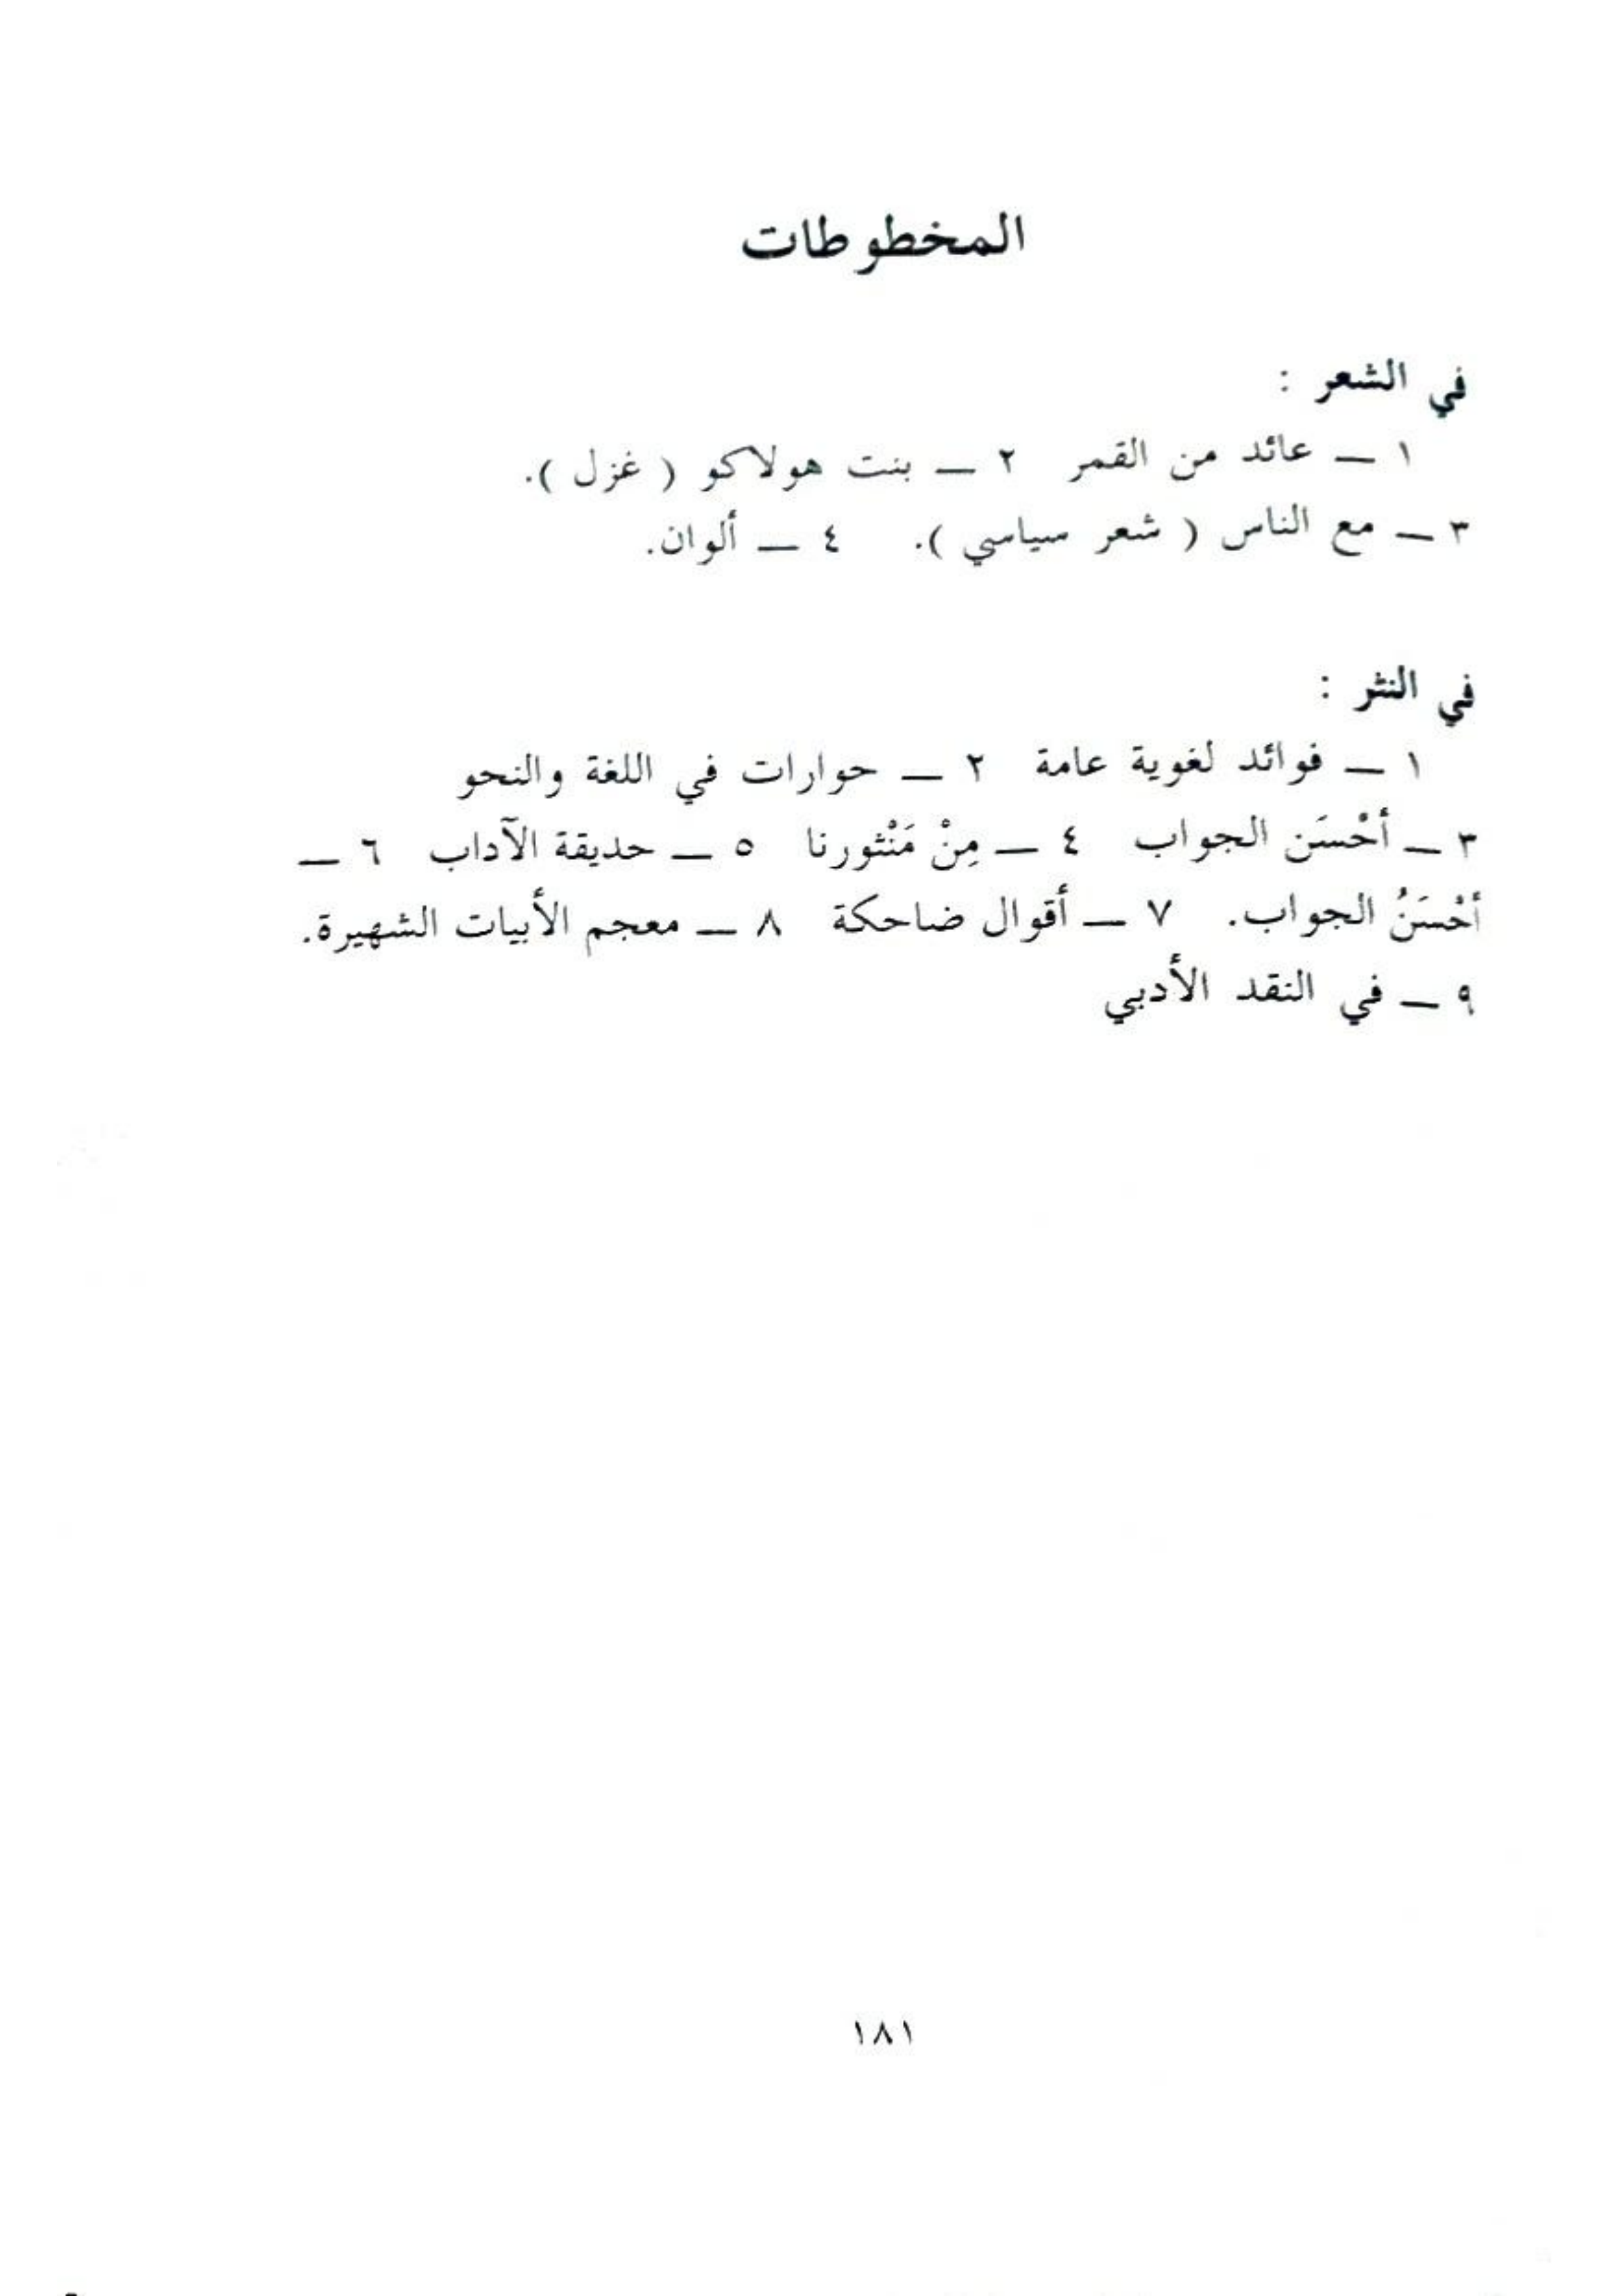 المخطوطات
في الشعر :
١ — عائد من القمر ٢ — بنت هولاكو ( غزل ).
٣ — مع الناس ( شعر سياسي ). ٤ — ألوان.
في النثر :
١ — فوائد لغوية عامة ٢ — حوارات في اللغة والنحو
٣ — أحْسَن الجواب ٤ — مِنْ مَنْثورنا ٥ — حديقة الآداب ٦ —
أحْسَنُ الجواب. ٧ — أقوال ضاحكة ٨ — معجم الأبيات الشهيرة.
٩ — في النقد الأدبي
١٨١